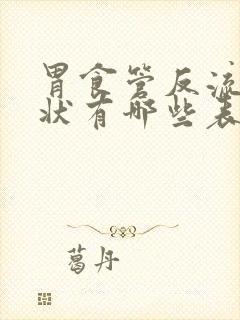 胃食管反流
状有哪些表
葛丹